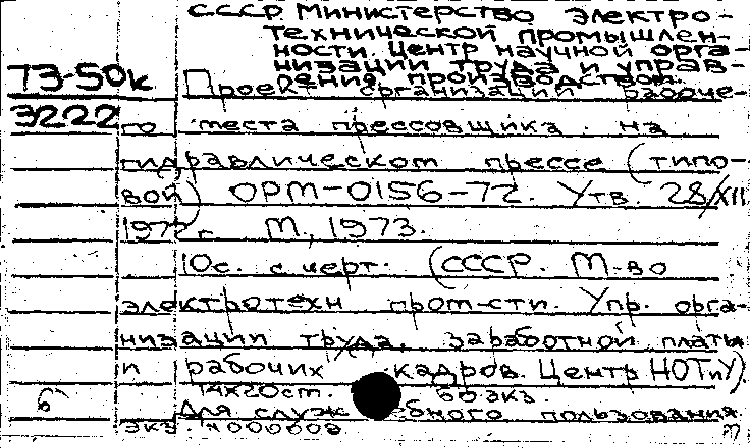 СССР. Министерство электро-
технической промышлен-
ности. Центр научной орга-
низации труда и управ-
ления производством.
ТЗ-50к
Проект организации рабоче-
3222 го места прессовщика на
гидравлическом прессе (типо-
вой) ОРМ-0156-72. Утв. 28/XII
1972г. М., 1973.
10с. с черт. (СССР. М-во
электротехн пром-сти. Упр. орга-
низации труда, заработной платы
и рабочих кадров. Центр НОТиУ).
14х20см. 60 экз.
б Для служебного пользования.
экз.